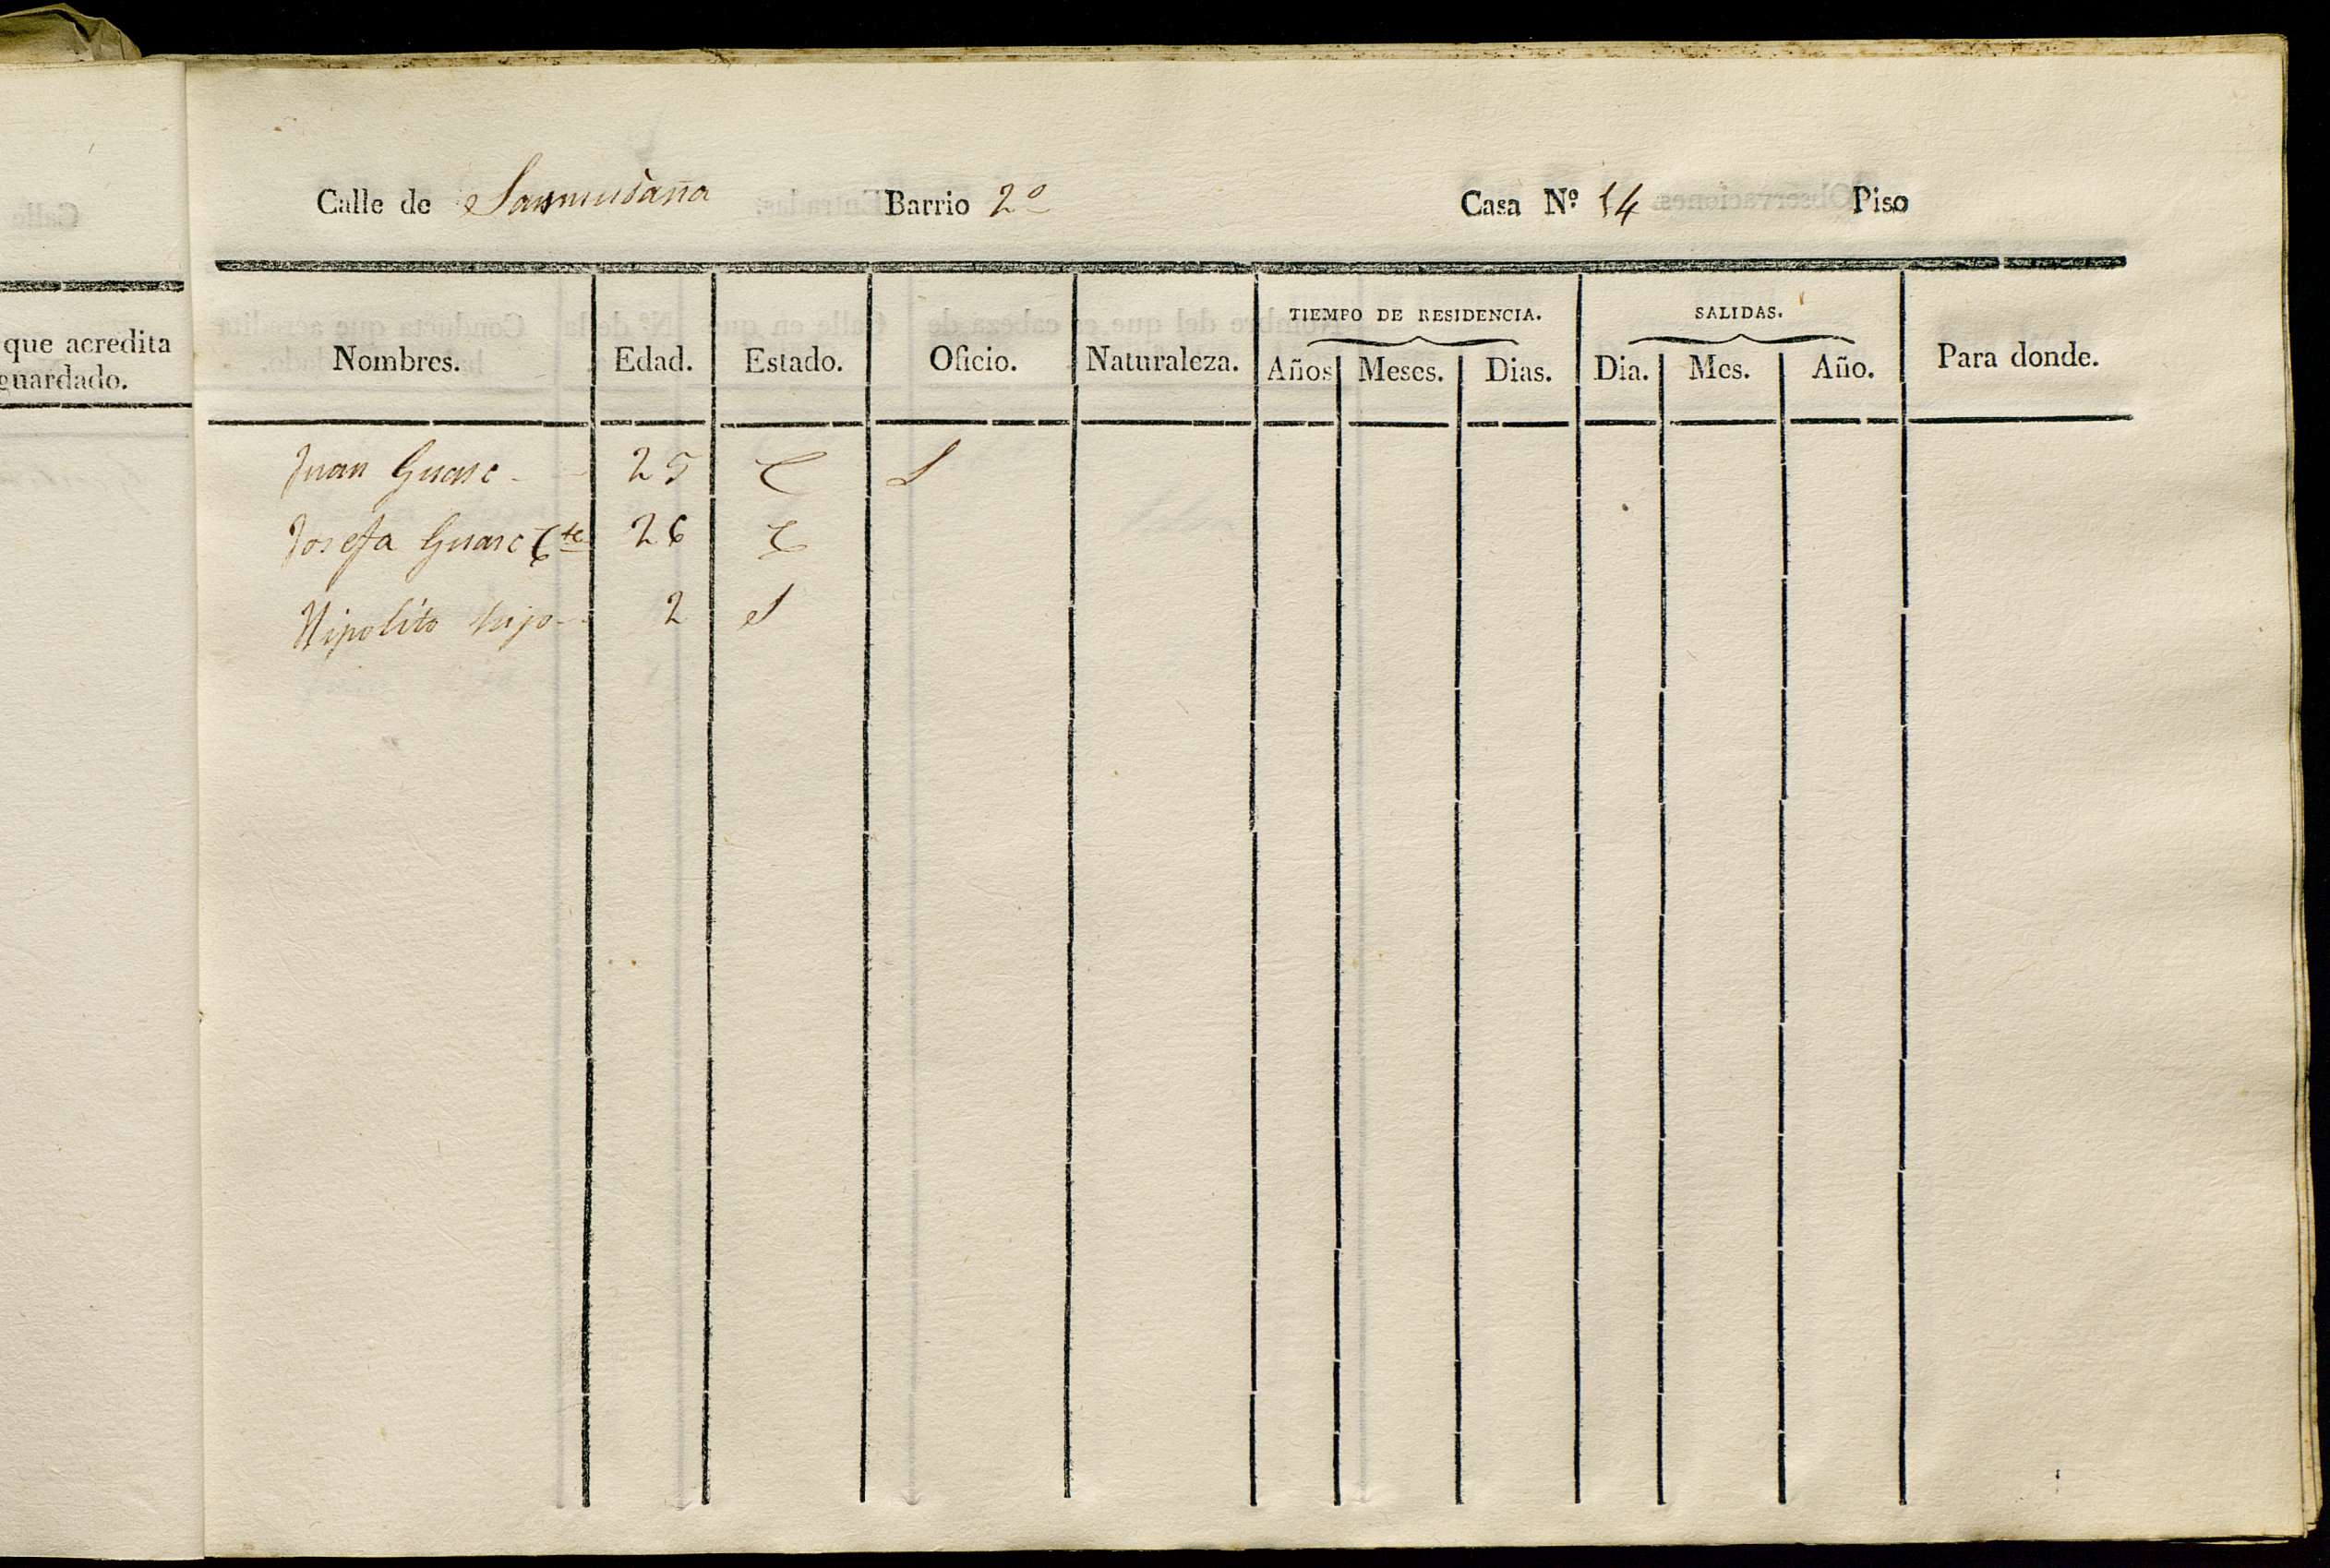 que acredita
guardado.
Calle de Sanmudaña Barrio 2º Casa Nº 14 Piso
TIEMPO DE RESIDENCIA. SALIDAS.
Nombres. Edad. Estado. Oficio. Naturaleza. Años Meses. Dias. Dia. Mes. Año. Para donde.
Juan Guasc 25 C
Josefa Guasc 26 C
Hipolito hijo 2 S